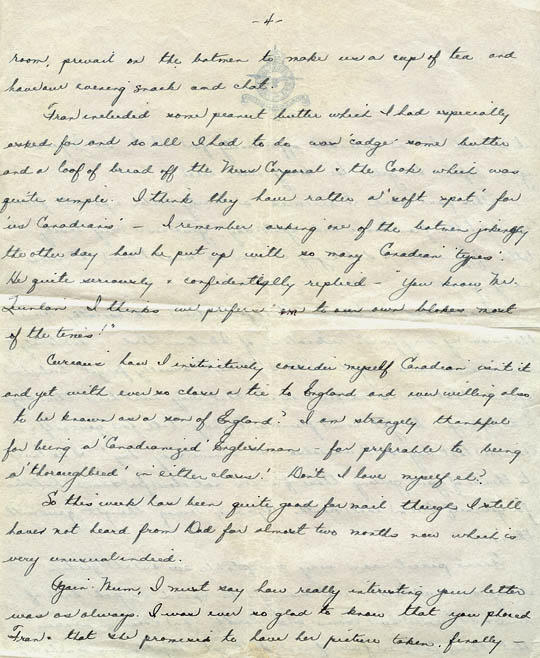 -4-
room, prevail on the batmen to make us a cup of tea and
have our evening snack and chat.
Fran included some peanut butter which I had especially
asked for and so all I had to do was 'cadge' some butter
and a loaf of bread off the Mess Corporal & the Cook which was
quite simple. I think they have rather a 'soft spot' for
us Canadians' — I remember asking one of the batmen jokingly
the other day how he put up with so many Canadian 'types'.
He quite seriously & confidentially replied — "You know, Mr.
I thinks we prefers 'em to our own blokes most
of the times!"
Curious how I instinctively consider myself Canadian isn't it
and yet with ever so close a tie to England and ever willing also
to be known as a son of England? I am strangely thankful
for being a 'Canadianized' Englishman — far preferable to being
a 'thoroughbred' in either class! Don't I love myself eh?
So this week has been quite good for mail though I still
have not heard from Dad for almost two months now which is
very unusual indeed.
Again Mum, I must say how really interesting your letter
was as always. I was ever so glad to know that you phoned
Fran & that she promises to have her picture taken, finally —